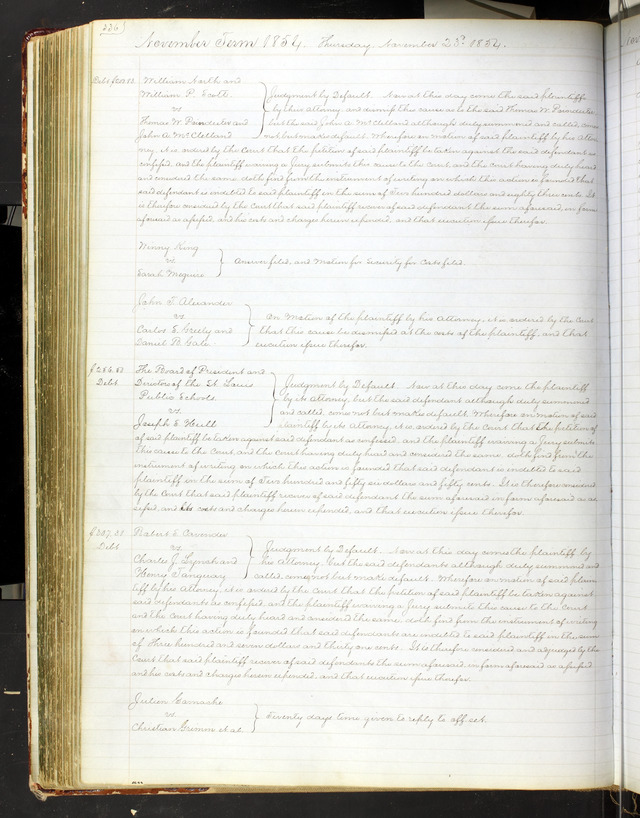 236
November Term 1854. Thursday, November 23d 1854.
William North and
William P. Scott
vs
Thomas W. Poindexter and
John A. McClelland
Judgment by Default. Now at this day come the said plaintiffs
by their attorney and dismiss this cause as to the said Thomas W. Poindexter
but the said John A. McClelland although duly summoned and called, comes
not but makes default. Wherefore on motion of said plaintiff by his attor-
ney, it is ordered by the Court that the petition of said plaintiff be taken against the said defendant as
confessed, and the plaintiff waiving a Jury submits this cause to the Court, and the Court having duly heard
and considered the same doth find from the instrument of writing on which this action is founded that
said defendant is indebted to said plaintiff in the sum of Two hundred dollars and eighty three cents. It
is therefore considered by the Court that said plaintiff recover of said defendant the sum aforesaid, in form
aforesaid as assessed, and his costs and charges herein expended, and that execution issue therefor.
Winny King
vs
Sarah Meguire
Answer filed, and Motion for Security for Costs filed.
John T. Alexander
vs
Carlos S. Greely and
Daniel B. Gale
On Motion of the plaintiff by his Attorney, it is ordered by the Court
that this cause be dismissed at the costs of the plaintiff, and that
execution issue therefor.
$256.50
Debt
The Board of President and
Directors of the St. Louis
Public Schools
vs.
Joseph E. Hull
Judgment by Default. Now at this day come the plaintiff
by its attorney, but the said defendant although duly summoned
and called, comes not but makes default. Wherefore on motion of said
plaintiff by its Attorney, it is ordered by the Court that the petition of
said plaintiff be taken against said defendant as confessed, and the plaintiff waiving a Jury submits
this cause to the Court, and the Court having duly heard and considered the same, doth find from the
instrument of writing on which this action is founded that said defendant is indebted to said
plaintiff in the sum of Two hundred and fifty six dollars and fifty cents. It is therefore considered
by the Court that said plaintiff recover of said defendant the sum aforesaid in form aforesaid as as-
sessed, and its costs and charges herein expended, and that execution issue therefor.
$307.31
Debt
Robert S.
vs.
Charles J. Lynch and
Henry Tanguary
Judgment by Default. Now at this day comes the plaintiff by
his Attorney, but the said defendants although duly summoned and
called, come not but make default. Wherefore on motion of said plain-
tiff by his Attorney, it is ordered by the Court that the petition of said plaintiff be taken against
said defendants as confessed, and the plaintiff waiving a Jury submits this cause to the Court
and the Court having duly heard and considered the same doth find from the instrument of writing
on which this action is founded that said defendants are indebted to said plaintiff in the sum
of Three hundred and seven dollars and thirty one cents. It is therefore considered and adjudged by the
Court that said plaintiff recover of said defendants the sum aforesaid, in form aforesaid as assessed
and his costs and charges herein expended, and that execution issue therefor.
Julien Carnache
vs.
Christian Grimm et al.
Twenty days time given to reply to off set.